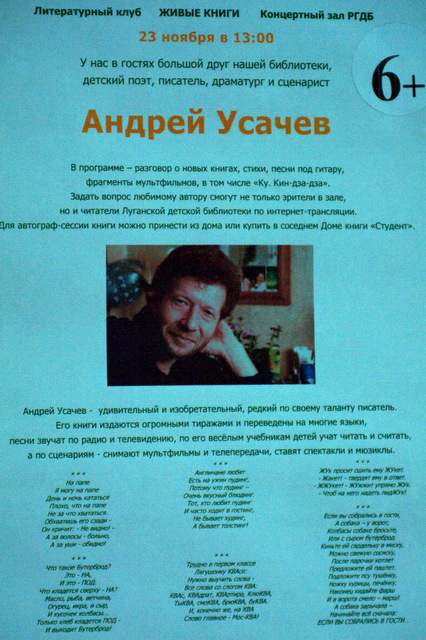 Литературный клуб ЖИВЫЕ КНИГИ Концертный зал РГДБ
23 ноября в 13:00
6+
У нас в гостях большой друг нашей библиотеки,
детский поэт, писатель, драматург и сценарист
Андрей Усачев
В программе – разговор о новых книгах, стихи, песни под гитару,
фрагменты мультфильмов, в том числе «Ку. Кин-дза-дза».
Задать вопрос любимому автору смогут не только зрители в зале,
но и читатели Луганской детской библиотеки по интернет-трансляции.
Для автограф-сессии книги можно принести из дома или купить в соседнем Доме книги «Студент».
Андрей Усачев - удивительный и изобретательный, редкий по своему таланту писатель.
Его книги издаются огромными тиражами и переведены на многие языки,
песни звучат по радио и телевидению, по его весёлым учебникам детей учат читать и считать,
а по сценариям - снимают мультфильмы и телепередачи, ставят спектакли и мюзиклы.
* * *
На папе
Я могу на папе
День и ночь кататься
Плохо, что на папе
Не за что хвататься.
Обхватишь его сзади -
Он кричит: - Не видно! -
А за волосы - больно,
А за уши - обидно!
* * *
Что такое Бутерброд?
Это - НА,
И это - ПОД.
Что кладется сверху - НА?
Масло, рыба, ветчина,
Огурец, икра, и сыр,
И кусочек колбасы...
Только хлеб кладется ПОД -
И выходит Бутерброд!
* * *
Англичане любят
Есть на ужин пудинг,
Потому что пудинг –
Очень вкусный блюдинг.
Тот, кто любит пудинг
И часто ходит в гостинг,
Не бывает худинг,
А бывает толстинг!
* * *
Трудно в первом классе
Лягушонку КВАсе:
Нужно выучить слова -
Все слова со слогом КВА:
КВАс, КВАдрат, КВАртира, КлюКВА,
ТыКВА, смоКВА, брюКВА, буКВА,
И, конечно же, на КВА
Слово главное - Мос-КВА!
* * *
ЖУк просит сшить ему ЖУкет.
- Жакет! - твердят ему в ответ.
- ЖЖУкет! - ЖУжжит упрямо ЖУк.
- Чтоб на него надеть пидЖУк!
* * *
Если вы собрались в гости,
А собака – у ворот,
Колбасы собаке бросьте,
Или с сыром бутерброд.
Киньте ей сардельку в миску,
Можно свежую сосиску,
После парочки котлет
Предложите ей паштет.
Подложите ей тушёнку,
Ножку курицы, печёнку,
Наконец кидайте фарш
И в ворота смело – марш!
А собака зарычала –
Начинайте всё сначала:
ЕСЛИ ВЫ СОБРАЛИСЬ В ГОСТИ...